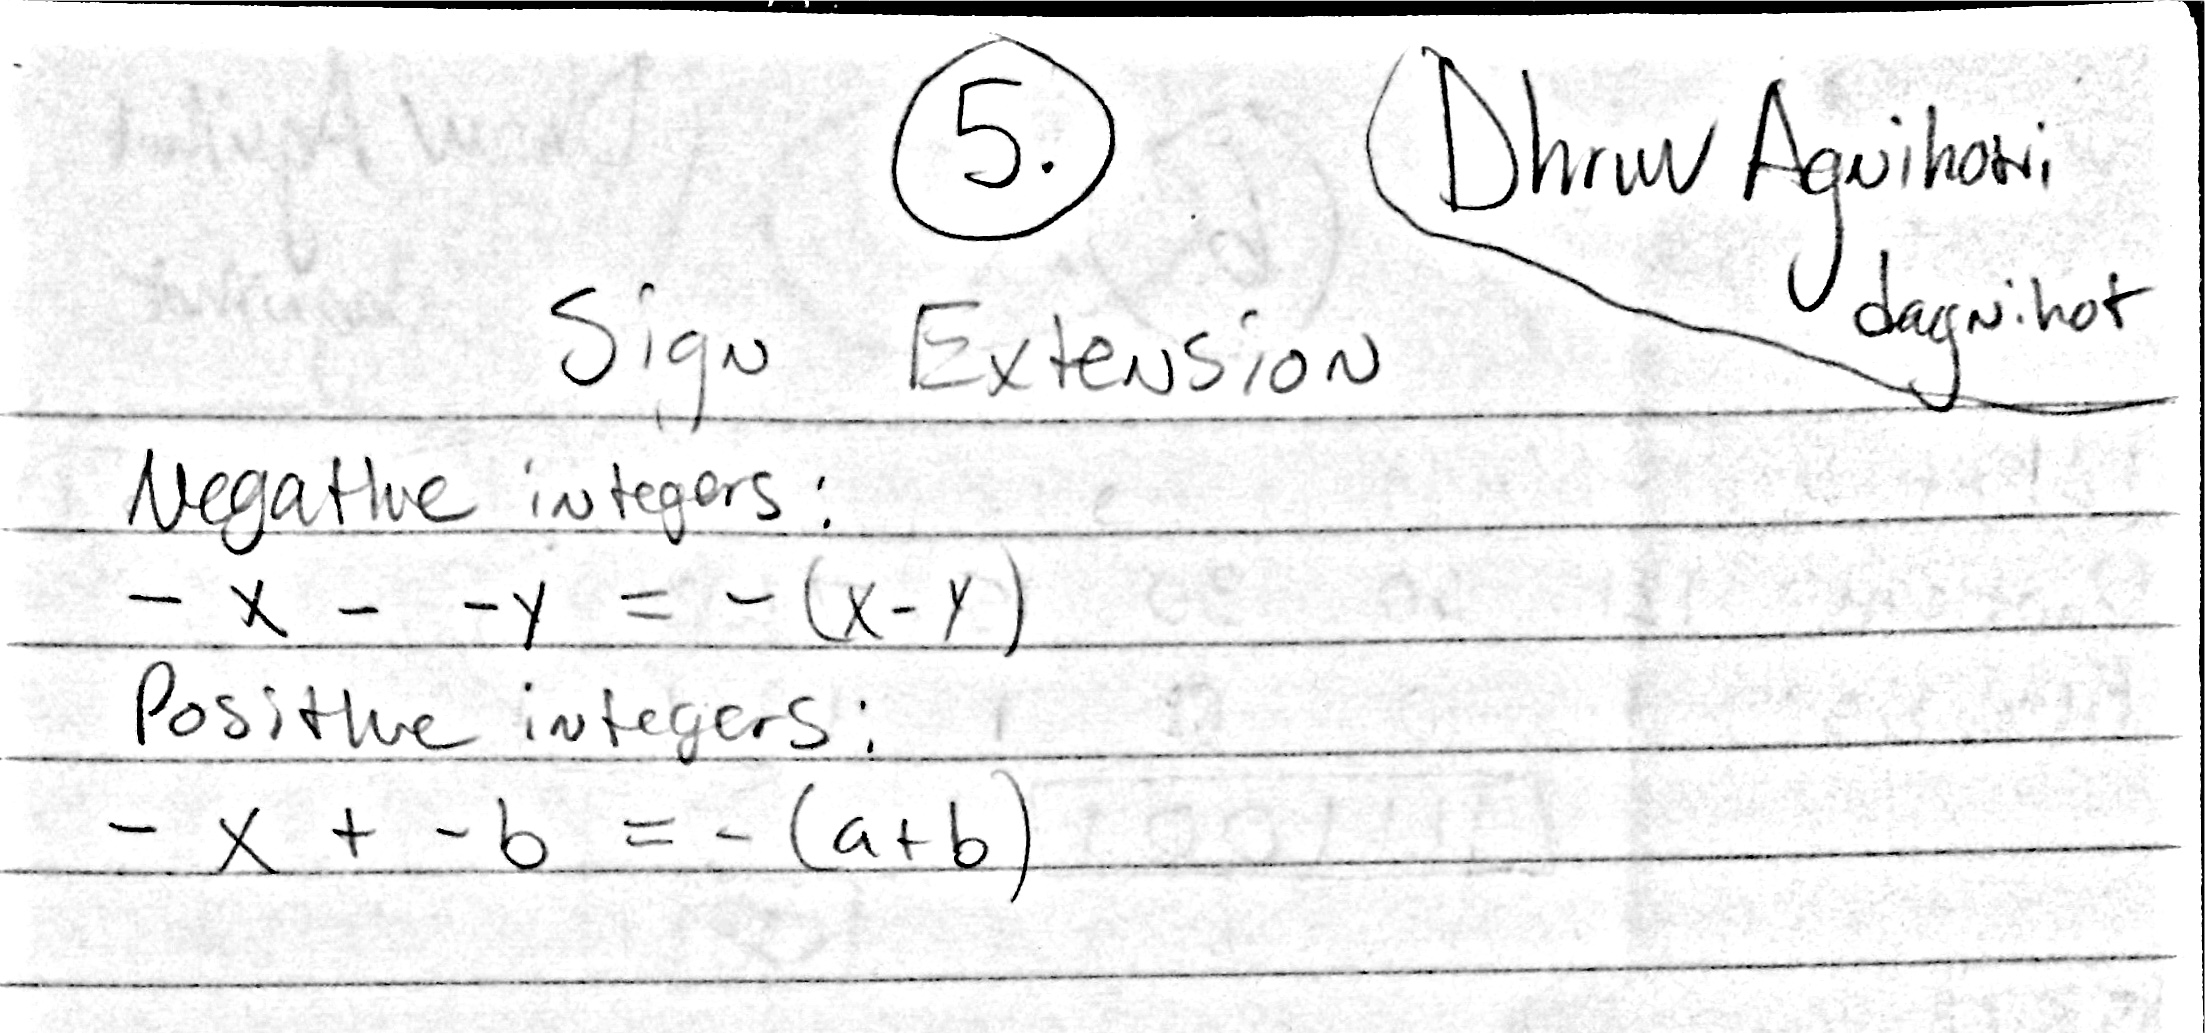 5.
Dhruv Agnihotri
dagnihot
Sign Extension
Negative integers:
- x - -y = -(x-y)
Positive integers:
- x + -b = -(a+b)